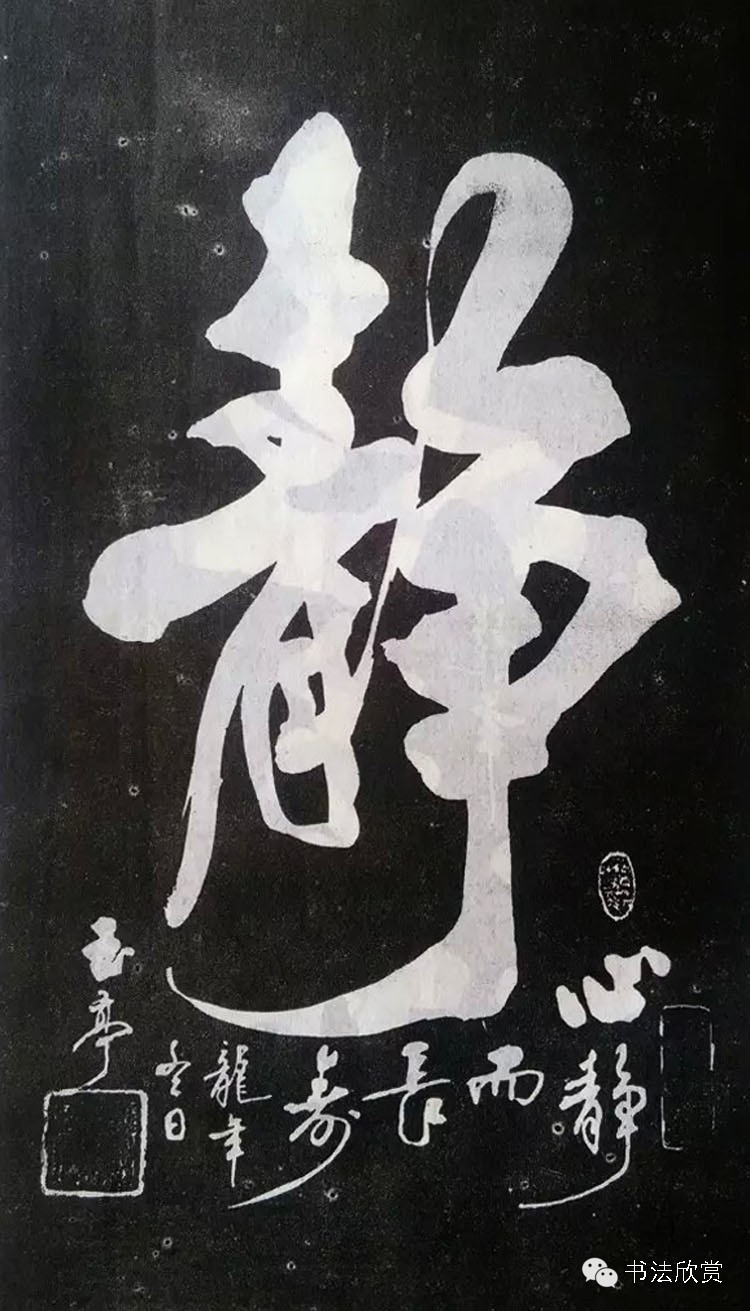 靜
心
靜
而
長
壽
龍年
冬日
玉亭
书法欣赏